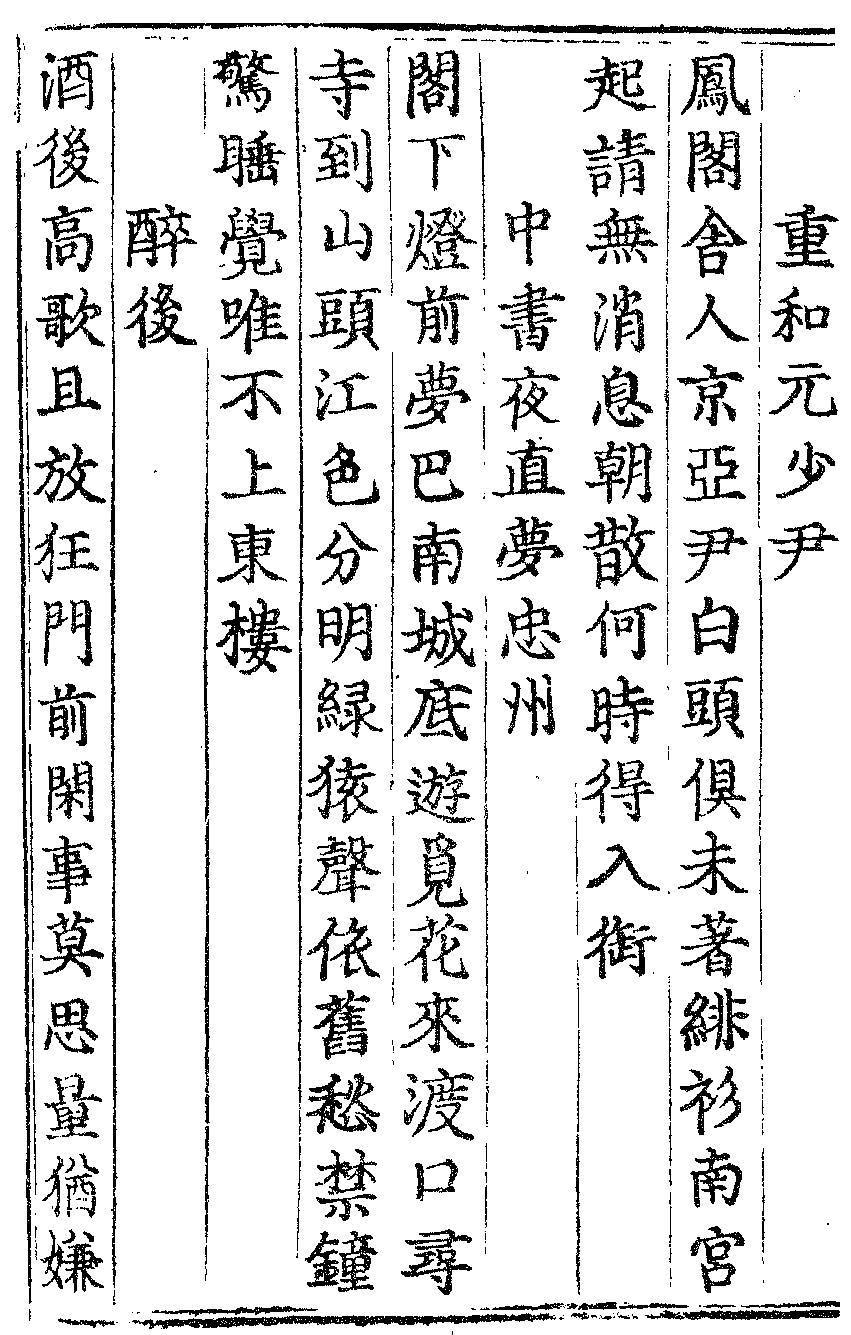 重和元少尹
鳳閣舍人京亞尹白頭俱未著緋衫南宮
起請無消息朝散何時得入銜
中書夜直夢忠州
閣下燈前夢巴南城底遊覓花來渡口尋
寺到山頭江色分明綠猿聲依舊愁禁鐘
驚睡覺唯不上東樓
醉後
酒後高歌且放狂門前閑事莫思量猶嫌